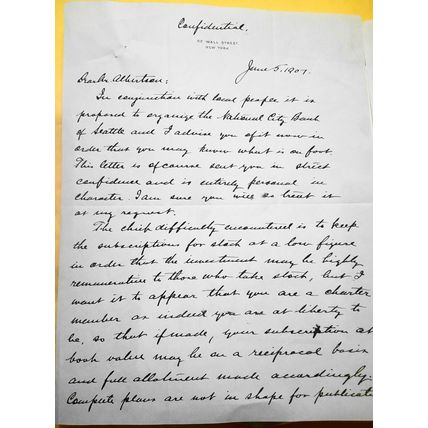 Confidential.
52 WALL STREET
NEW YORK
June 5, 1907.
Dear Mr Albertson:
In conjunction with local people it is
proposed to organize the National City Bank
of Seattle and I advise you of it now in
order that you may know what is on foot.
This letter is of course sent you in strict
confidence and is entirely personal in
character. I am sure you will so treat it
at my request.
The chief difficulty encountered is to keep
the subscriptions for stock at a low figure
in order that the investment may be highly
remunerative to those who take stock, but I
want it to appear that you are a charter
member as indeed you are at liberty to
be, so that if made, your subscription at
book value may be on a reciprocal basis
and full allotment made accordingly.
Complete plans are not in shape for publicat